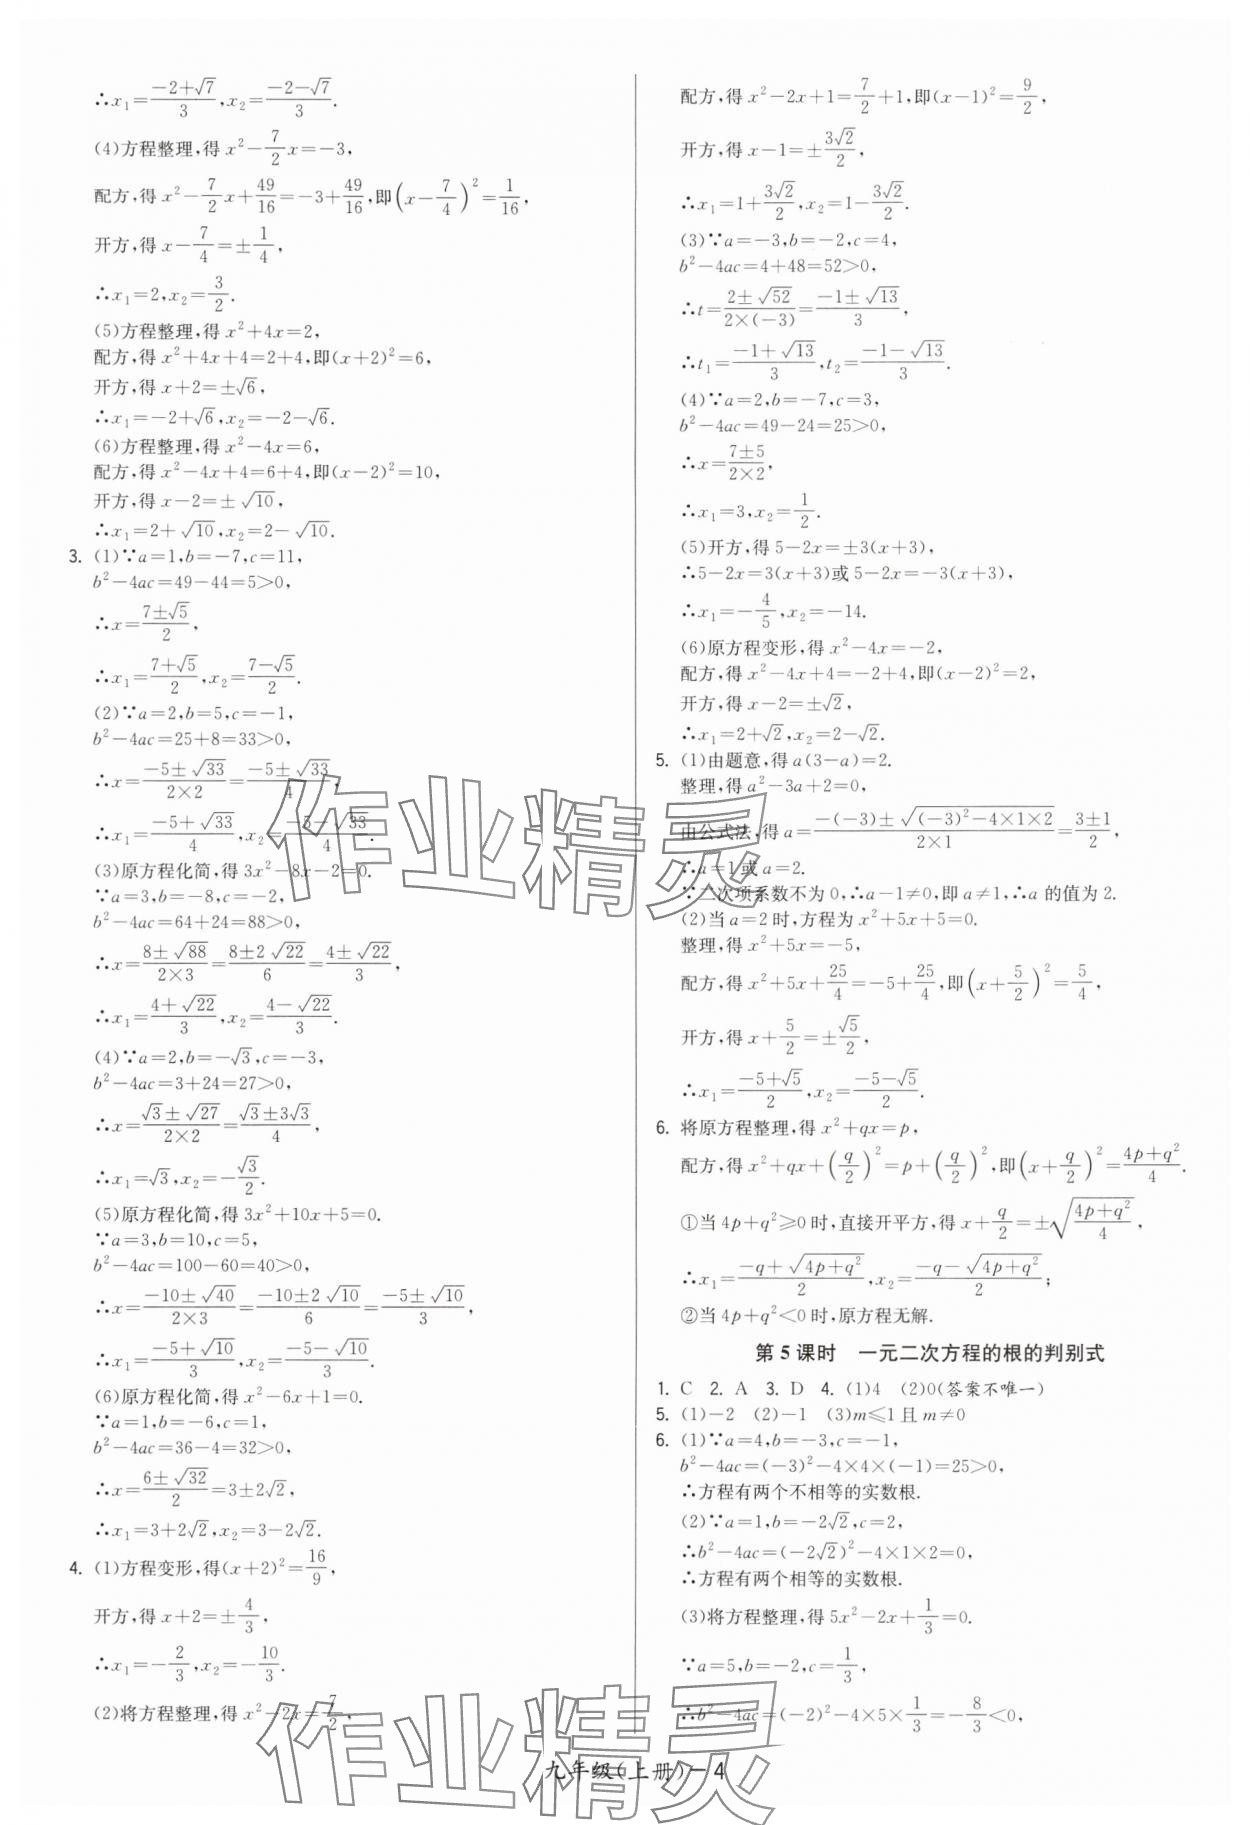 ∴x₁=(−2+√7)/3,x₂=(−2−√7)/3.
(4)方程整理,得 x²−7/2x=−3,
配方,得 x²−7/2x+49/16=−3+49/16,即(x−7/4)²=1/16,
开方,得 x−7/4=±1/4,
∴x₁=2,x₂=3/2.
(5)方程整理,得 x²+4x=2,
配方,得 x²+4x+4=2+4,即(x+2)²=6,
开方,得 x+2=±√6,
∴x₁=−2+√6,x₂=−2−√6.
(6)方程整理,得 x²−4x=6,
配方,得 x²−4x+4=6+4,即(x−2)²=10,
开方,得 x−2=±√10,
∴x₁=2+√10,x₂=2−√10.
3. (1)∵a=1,b=−7,c=11,
b²−4ac=49−44=5>0,
∴x=(7±√5)/2,
∴x₁=(7+√5)/2,x₂=(7−√5)/2.
(2)∵a=2,b=5,c=−1,
b²−4ac=25+8=33>0,
∴x=(−5±√33)/(2×2)=(−5±√33)/4,
∴x₁=(−5+√33)/4,x₂=(−5−√33)/4.
(3)原方程化简,得 3x²−8x−2=0.
∵a=3,b=−8,c=−2,
b²−4ac=64+24=88>0,
∴x=(8±√88)/(2×3)=(8±2√22)/6=(4±√22)/3,
∴x₁=(4+√22)/3,x₂=(4−√22)/3.
(4)∵a=2,b=−√3,c=−3,
b²−4ac=3+24=27>0,
∴x=(√3±√27)/(2×2)=(√3±3√3)/4,
∴x₁=√3,x₂=−√3/2.
(5)原方程化简,得 3x²+10x+5=0.
∵a=3,b=10,c=5,
b²−4ac=100−60=40>0,
∴x=(−10±√40)/(2×3)=(−10±2√10)/6=(−5±√10)/3,
∴x₁=(−5+√10)/3,x₂=(−5−√10)/3.
(6)原方程化简,得 x²−6x+1=0.
∵a=1,b=−6,c=1,
b²−4ac=36−4=32>0,
∴x=(6±√32)/2=3±2√2,
∴x₁=3+2√2,x₂=3−2√2.
4. (1)方程变形,得(x+2)²=16/9,
开方,得 x+2=±4/3,
∴x₁=−2/3,x₂=−10/3.
(2)将方程整理,得 x²−2x=7/2,
配方,得 x²−2x+1=7/2+1,即(x−1)²=9/2,
开方,得 x−1=±3√2/2,
∴x₁=1+3√2/2,x₂=1−3√2/2.
(3)∵a=−3,b=−2,c=4,
b²−4ac=4+48=52>0,
∴t=(2±√52)/(2×(−3))=(−1±√13)/3,
∴t₁=(−1+√13)/3,t₂=(−1−√13)/3.
(4)∵a=2,b=−7,c=3,
b²−4ac=49−24=25>0,
∴x=(7±5)/(2×2),
∴x₁=3,x₂=1/2.
(5)开方,得 5−2x=±3(x+3),
∴5−2x=3(x+3)或 5−2x=−3(x+3),
∴x₁=−4/5,x₂=−14.
(6)原方程变形,得 x²−4x=−2,
配方,得 x²−4x+4=−2+4,即(x−2)²=2,
开方,得 x−2=±√2,
∴x₁=2+√2,x₂=2−√2.
5. (1)由题意,得 a(3−a)=2.
整理,得 a²−3a+2=0,
由公式法,得 a=(−(−3)±√((−3)²−4×1×2))/(2×1)=(3±1)/2,
∴a=1 或 a=2.
∵二次项系数不为 0,∴a−1≠0,即 a≠1,∴a 的值为 2.
(2)当 a=2 时,方程为 x²+5x+5=0.
整理,得 x²+5x=−5,
配方,得 x²+5x+25/4=−5+25/4,即(x+5/2)²=5/4,
开方,得 x+5/2=±√5/2,
∴x₁=(−5+√5)/2,x₂=(−5−√5)/2.
6. 将原方程整理,得 x²+qx=p,
配方,得 x²+qx+(q/2)²=p+(q/2)²,即(x+q/2)²=(4p+q²)/4.
①当 4p+q²≥0 时,直接开平方,得 x+q/2=±√((4p+q²)/4),
∴x₁=(−q+√(4p+q²))/2,x₂=(−q−√(4p+q²))/2;
②当 4p+q²<0 时,原方程无解.
第 5 课时 一元二次方程的根的判别式
1. C 2. A 3. D 4. (1)4 (2)0(答案不唯一)
5. (1)−2 (2)−1 (3)m≤1 且 m≠0
6. (1)∵a=4,b=−3,c=−1,
b²−4ac=(−3)²−4×4×(−1)=25>0,
∴方程有两个不相等的实数根.
(2)∵a=1,b=−2√2,c=2,
∴b²−4ac=(−2√2)²−4×1×2=0,
∴方程有两个相等的实数根.
(3)将方程整理,得 5x²−2x+1/3=0.
∵a=5,b=−2,c=1/3,
∴b²−4ac=(−2)²−4×5×1/3=−8/3<0,
九年级(上册)−4
作业精灵
作业精灵